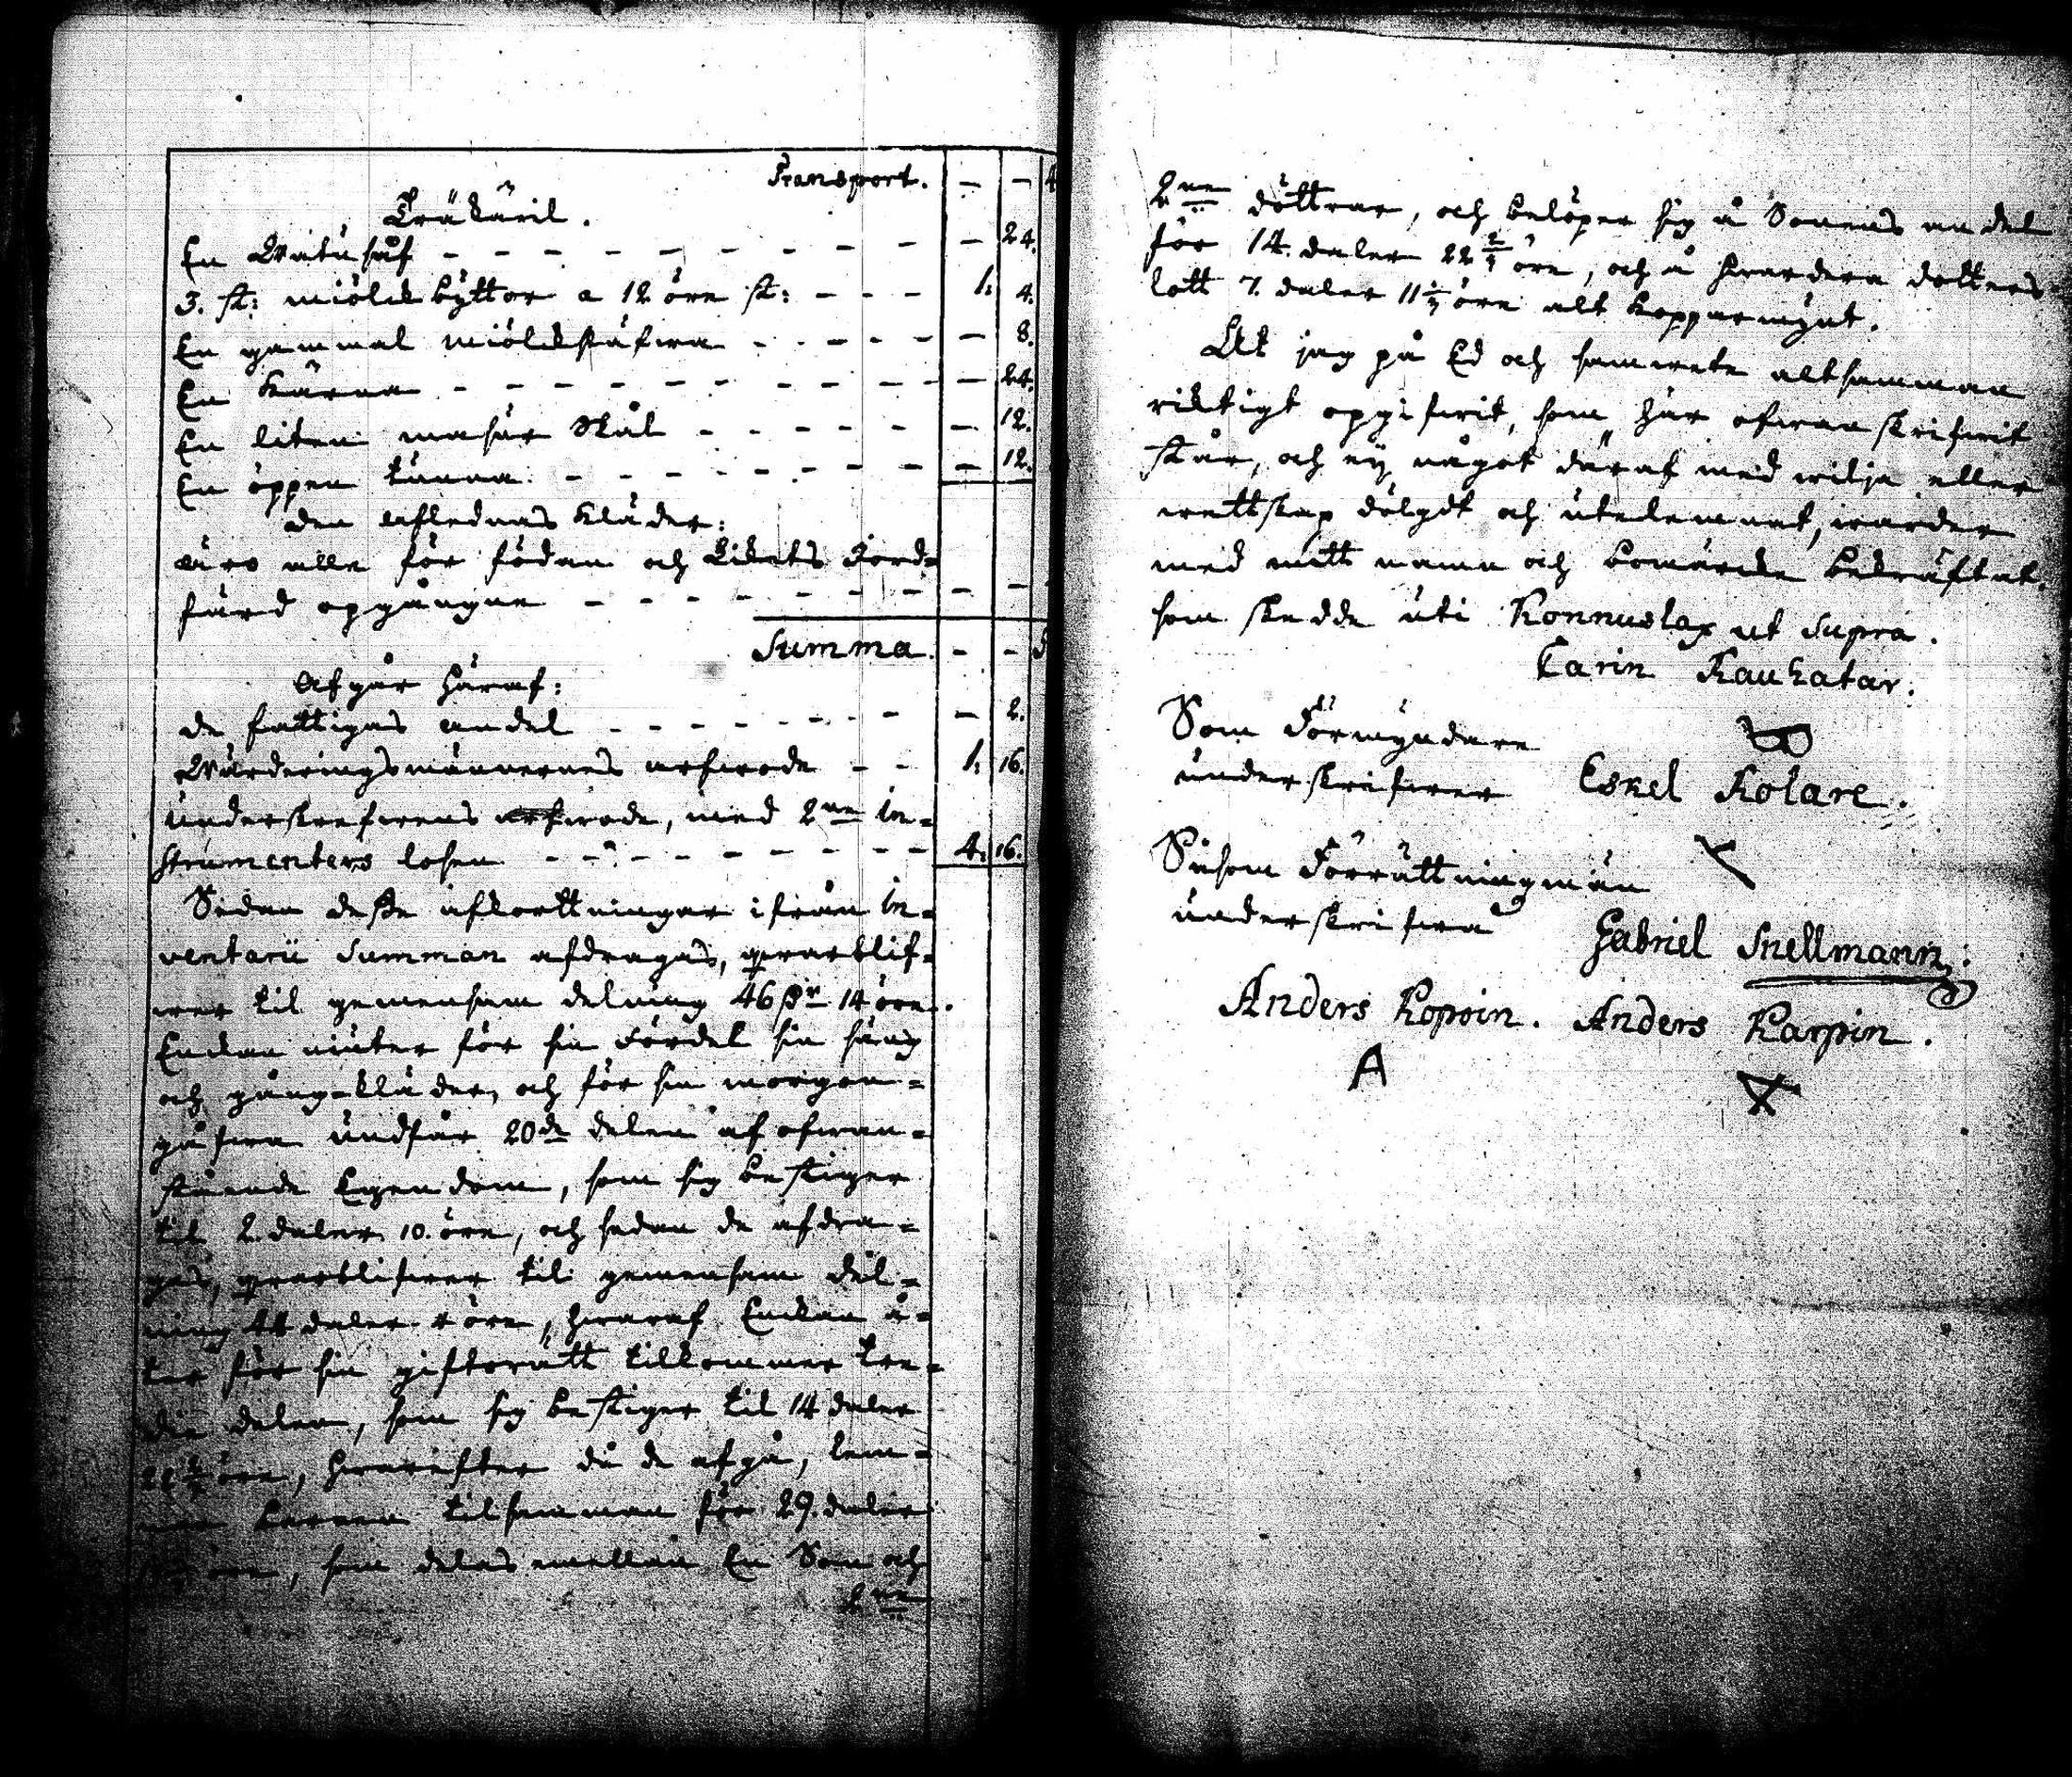 Transport. - - 4
Träkäril.
En Watusåf - - - - - - - - - 24.
3. st: miölck byttor a 12 öre st: - - - 1. 4.
En gammal miölckstäfwa - - - - - 8.
En Kärna - - - - - - - - - 24.
En liten masur Skål - - - - - - 12.
En öppen tunna. - - - - - - - - 12.
Den aflednas Kläder:
äro alle för födan och Likets Jord-
färd opgångne - - - - - - - - - -
Summa. - - 5
Afgår häraf:
de fattigas andel - - - - - - - - 2.
Wärderingsmännernes arfwode - - 1. 16.
underskrefwens arfwode, med 2ne In-
strumenters lösen - - - - - - - - - 4. 16.
Sedan desse afkortningar ifrån In-
ventarii Summan afdragas, qwarblif-
wer til gemensam delning 46 dr 14 öre.
Enckan niuter för sin Fördel sin säng
och gång-kläder, och för sin morgon-
gåfwa undfår 20de delen af ofwan-
stående Egendom, som sig bestiger
til 2. daler 10. öre, och sedan de afdra-
gas, qwarblifwer til gemensam del-
ning 44 daler 4 öre, hwaraf Enckan å-
ter för sin giftorätt tillkommer tre-
die delen, som sig bestiger til 14 daler
22 2/3 öre, hwarefter då de afgå, lem-
nas barnen tilsamman för 29. daler
öre, som delas emellan En Son och
2ne
2ne döttrar, och belöper sig å Sonens andel
för 14. daler 22 2/3 öre, och å hwardera dotters
lott 7. daler 11 1/3 öre alt Koppar mynt.
At jag på Ed och samwete altsamman
richtigt opgifwit, som här ofwanskrifwit
står, och ey något däraf med wilja eller
wettskap dölgdt och utelemnat, warder
med mitt namn och bomärcke bekräftat,
som skedde uti Konnuslax ut Supra.
Carin Kauhatar.
Som Förmyndare
underskrifwer Eskel Kolare.
Såsom Förrättningmän
underskrifwa Gabriel Snellmann.
Anders Kopoin. Anders Karpin.
A